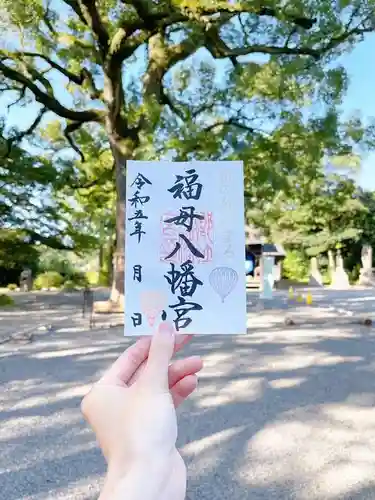 福母八幡宮
令和五年 月 日